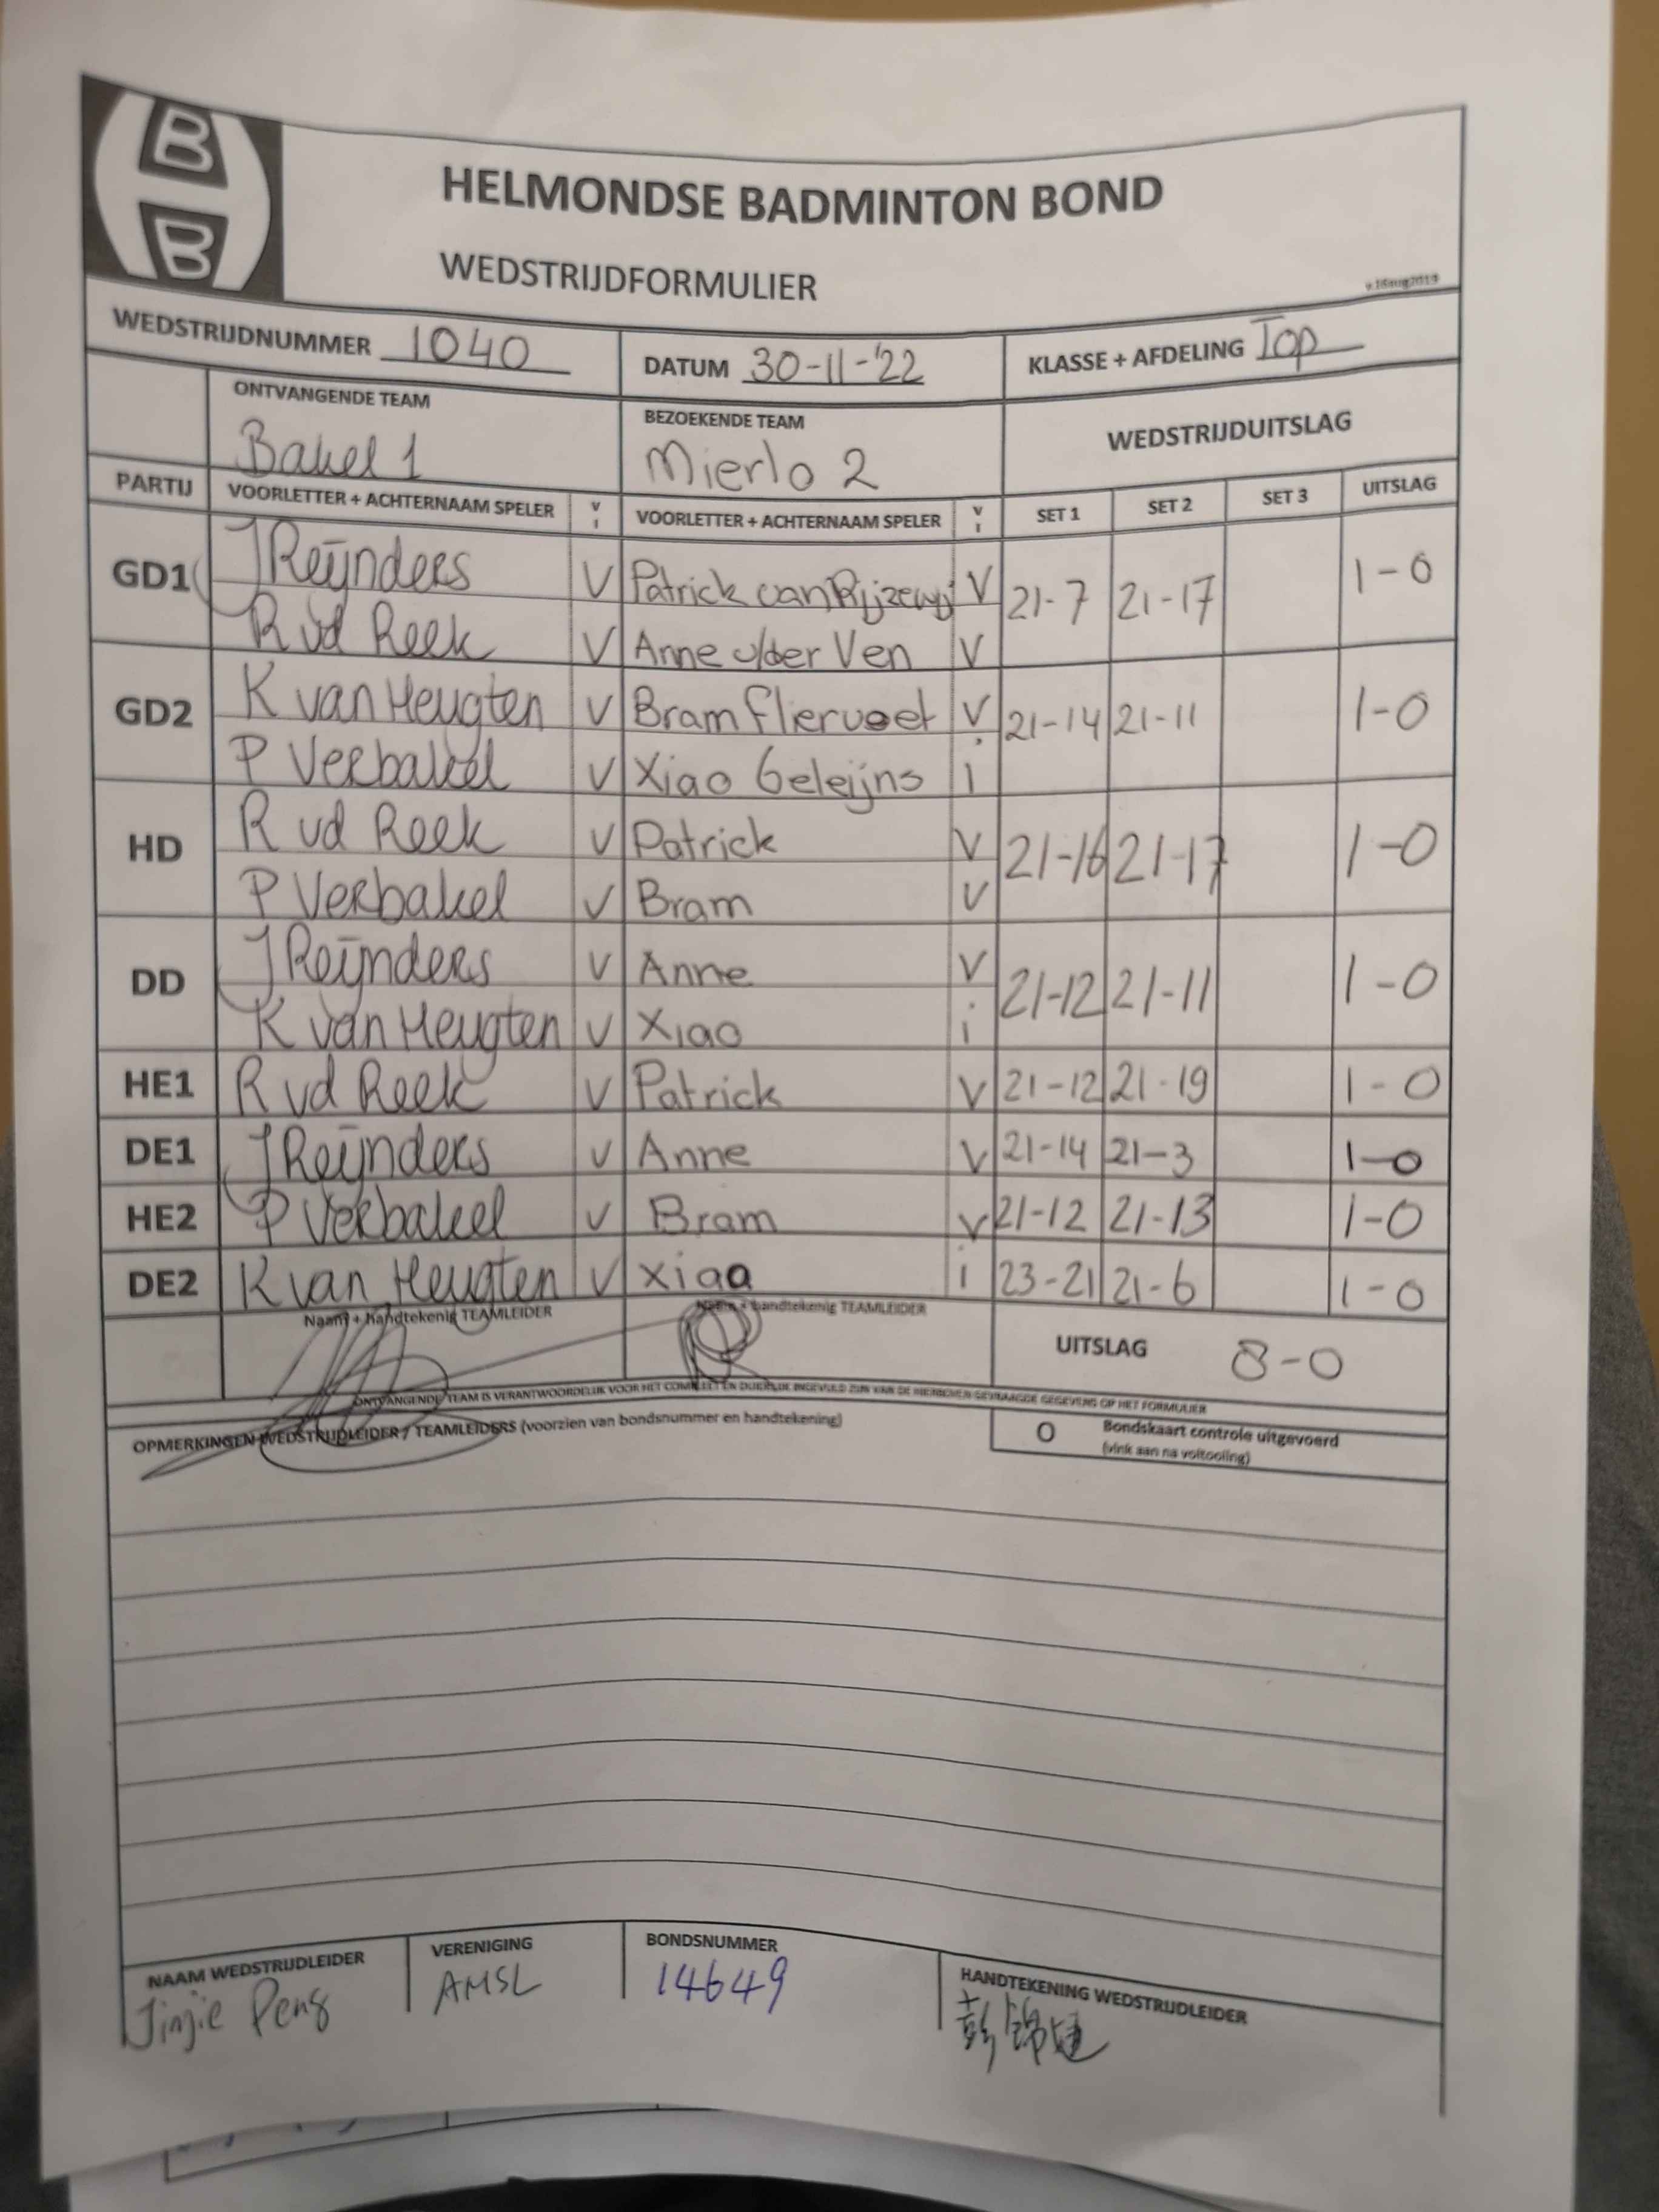 B
B
HELMONDSE BADMINTON BOND
WEDSTRIJDFORMULIER
WEDSTRIJDNUMMER 1040 DATUM 30-11-'22 KLASSE + AFDELING Top
ONTVANGENDE TEAM BEZOEKENDE TEAM WEDSTRIJDUITSLAG
Bakel 1 Mierlo 2
PARTIJ VOORLETTER + ACHTERNAAM SPELER V I VOORLETTER + ACHTERNAAM SPELER V I SET 1 SET 2 SET 3 UITSLAG
GD1 J Reijnders V Patrick van Rijzewij V 21-7 21-17 1-0
R vd Reek V Anne v/der Ven V
GD2 K van Heugten V Bram Fliervoet V 21-14 21-11 1-0
P Verbakel V Xiao Geleijns i
HD R vd Reek V Patrick V 21-16 21-17 1-0
P Verbakel V Bram V
DD J Reijnders V Anne V 21-12 21-11 1-0
K van Heugten V Xiao i
HE1 R vd Reek V Patrick V 21-12 21-19 1-0
DE1 J Reijnders V Anne V 21-14 21-3 1-0
HE2 P Verbakel V Bram V 21-12 21-13 1-0
DE2 K van Heugten V Xiao i 23-21 21-6 1-0
Naam + handtekenig TEAMLEIDER Naam + handtekenig TEAMLEIDER
UITSLAG 8-0
ONTVANGENDE TEAM IS VERANTWOORDELIJK VOOR HET COMPLEET EN DUIDELIJK INGEVULD ZIJN VAN DE HIERBOVEN GEVRAAGDE GEGEVENS OP HET FORMULIER
OPMERKINGEN WEDSTRIJDLEIDER / TEAMLEIDERS (voorzien van bondsnummer en handtekening)
O Bondskaart controle uitgevoerd
(vink aan na voltooiing)
NAAM WEDSTRIJDLEIDER VERENIGING BONDSNUMMER HANDTEKENING WEDSTRIJDLEIDER
Jinjie Peng AMSL 14649 彭锦健